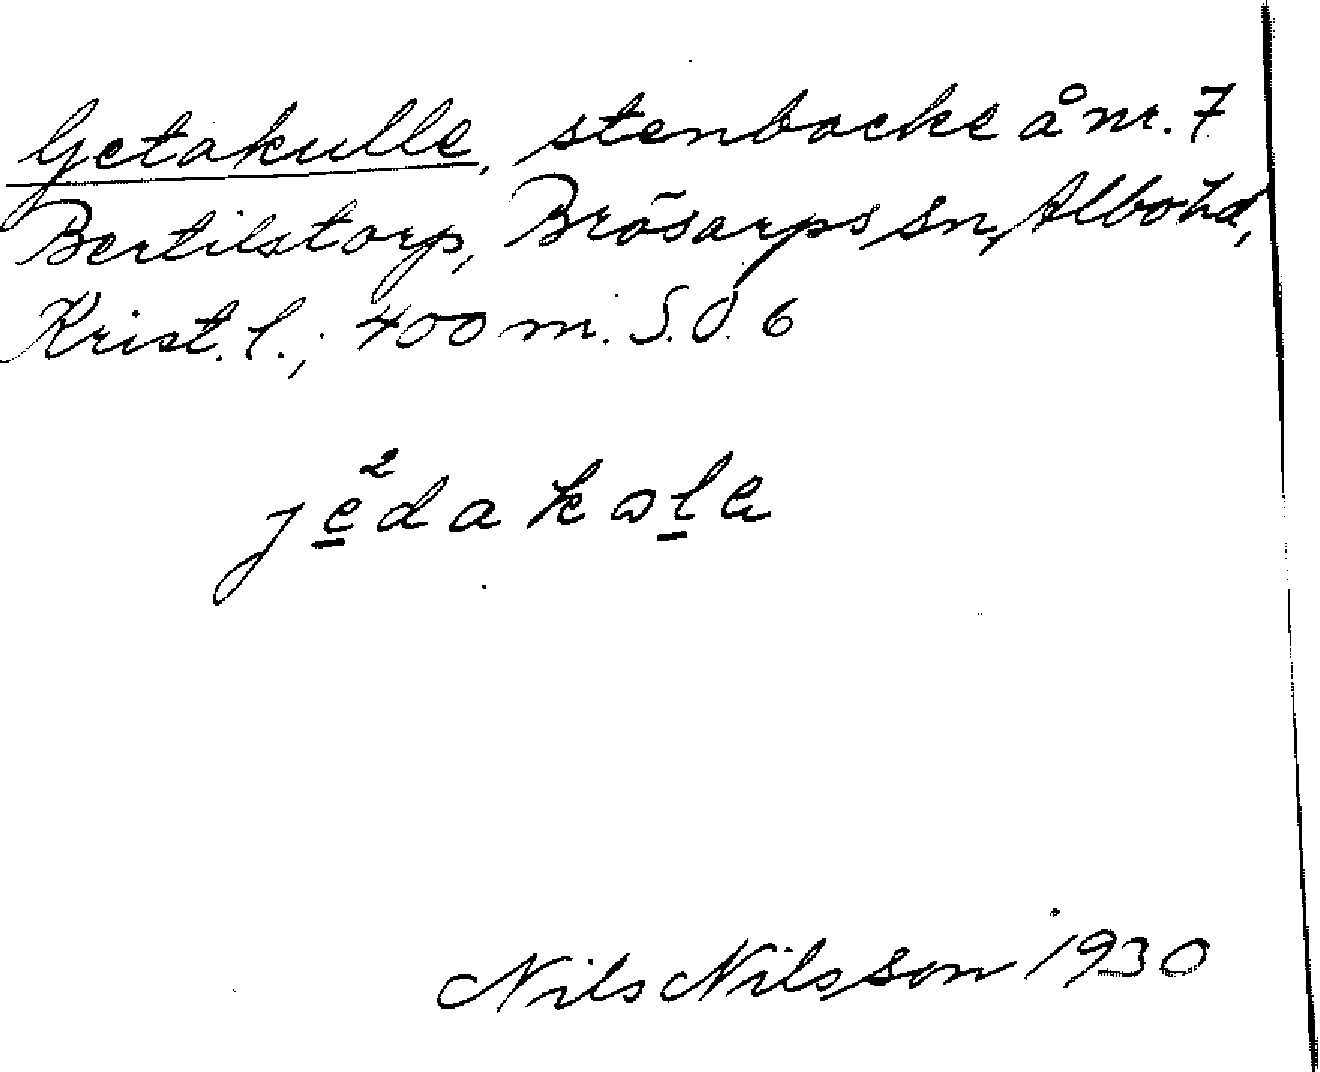 Getakulle, stenbacke å nr. 7
Bertilstorp, Brösarps sn, Albo hd,
Krist. l.; 400 m. S.O. 6
jèdakola
Nils Nilsson 1930